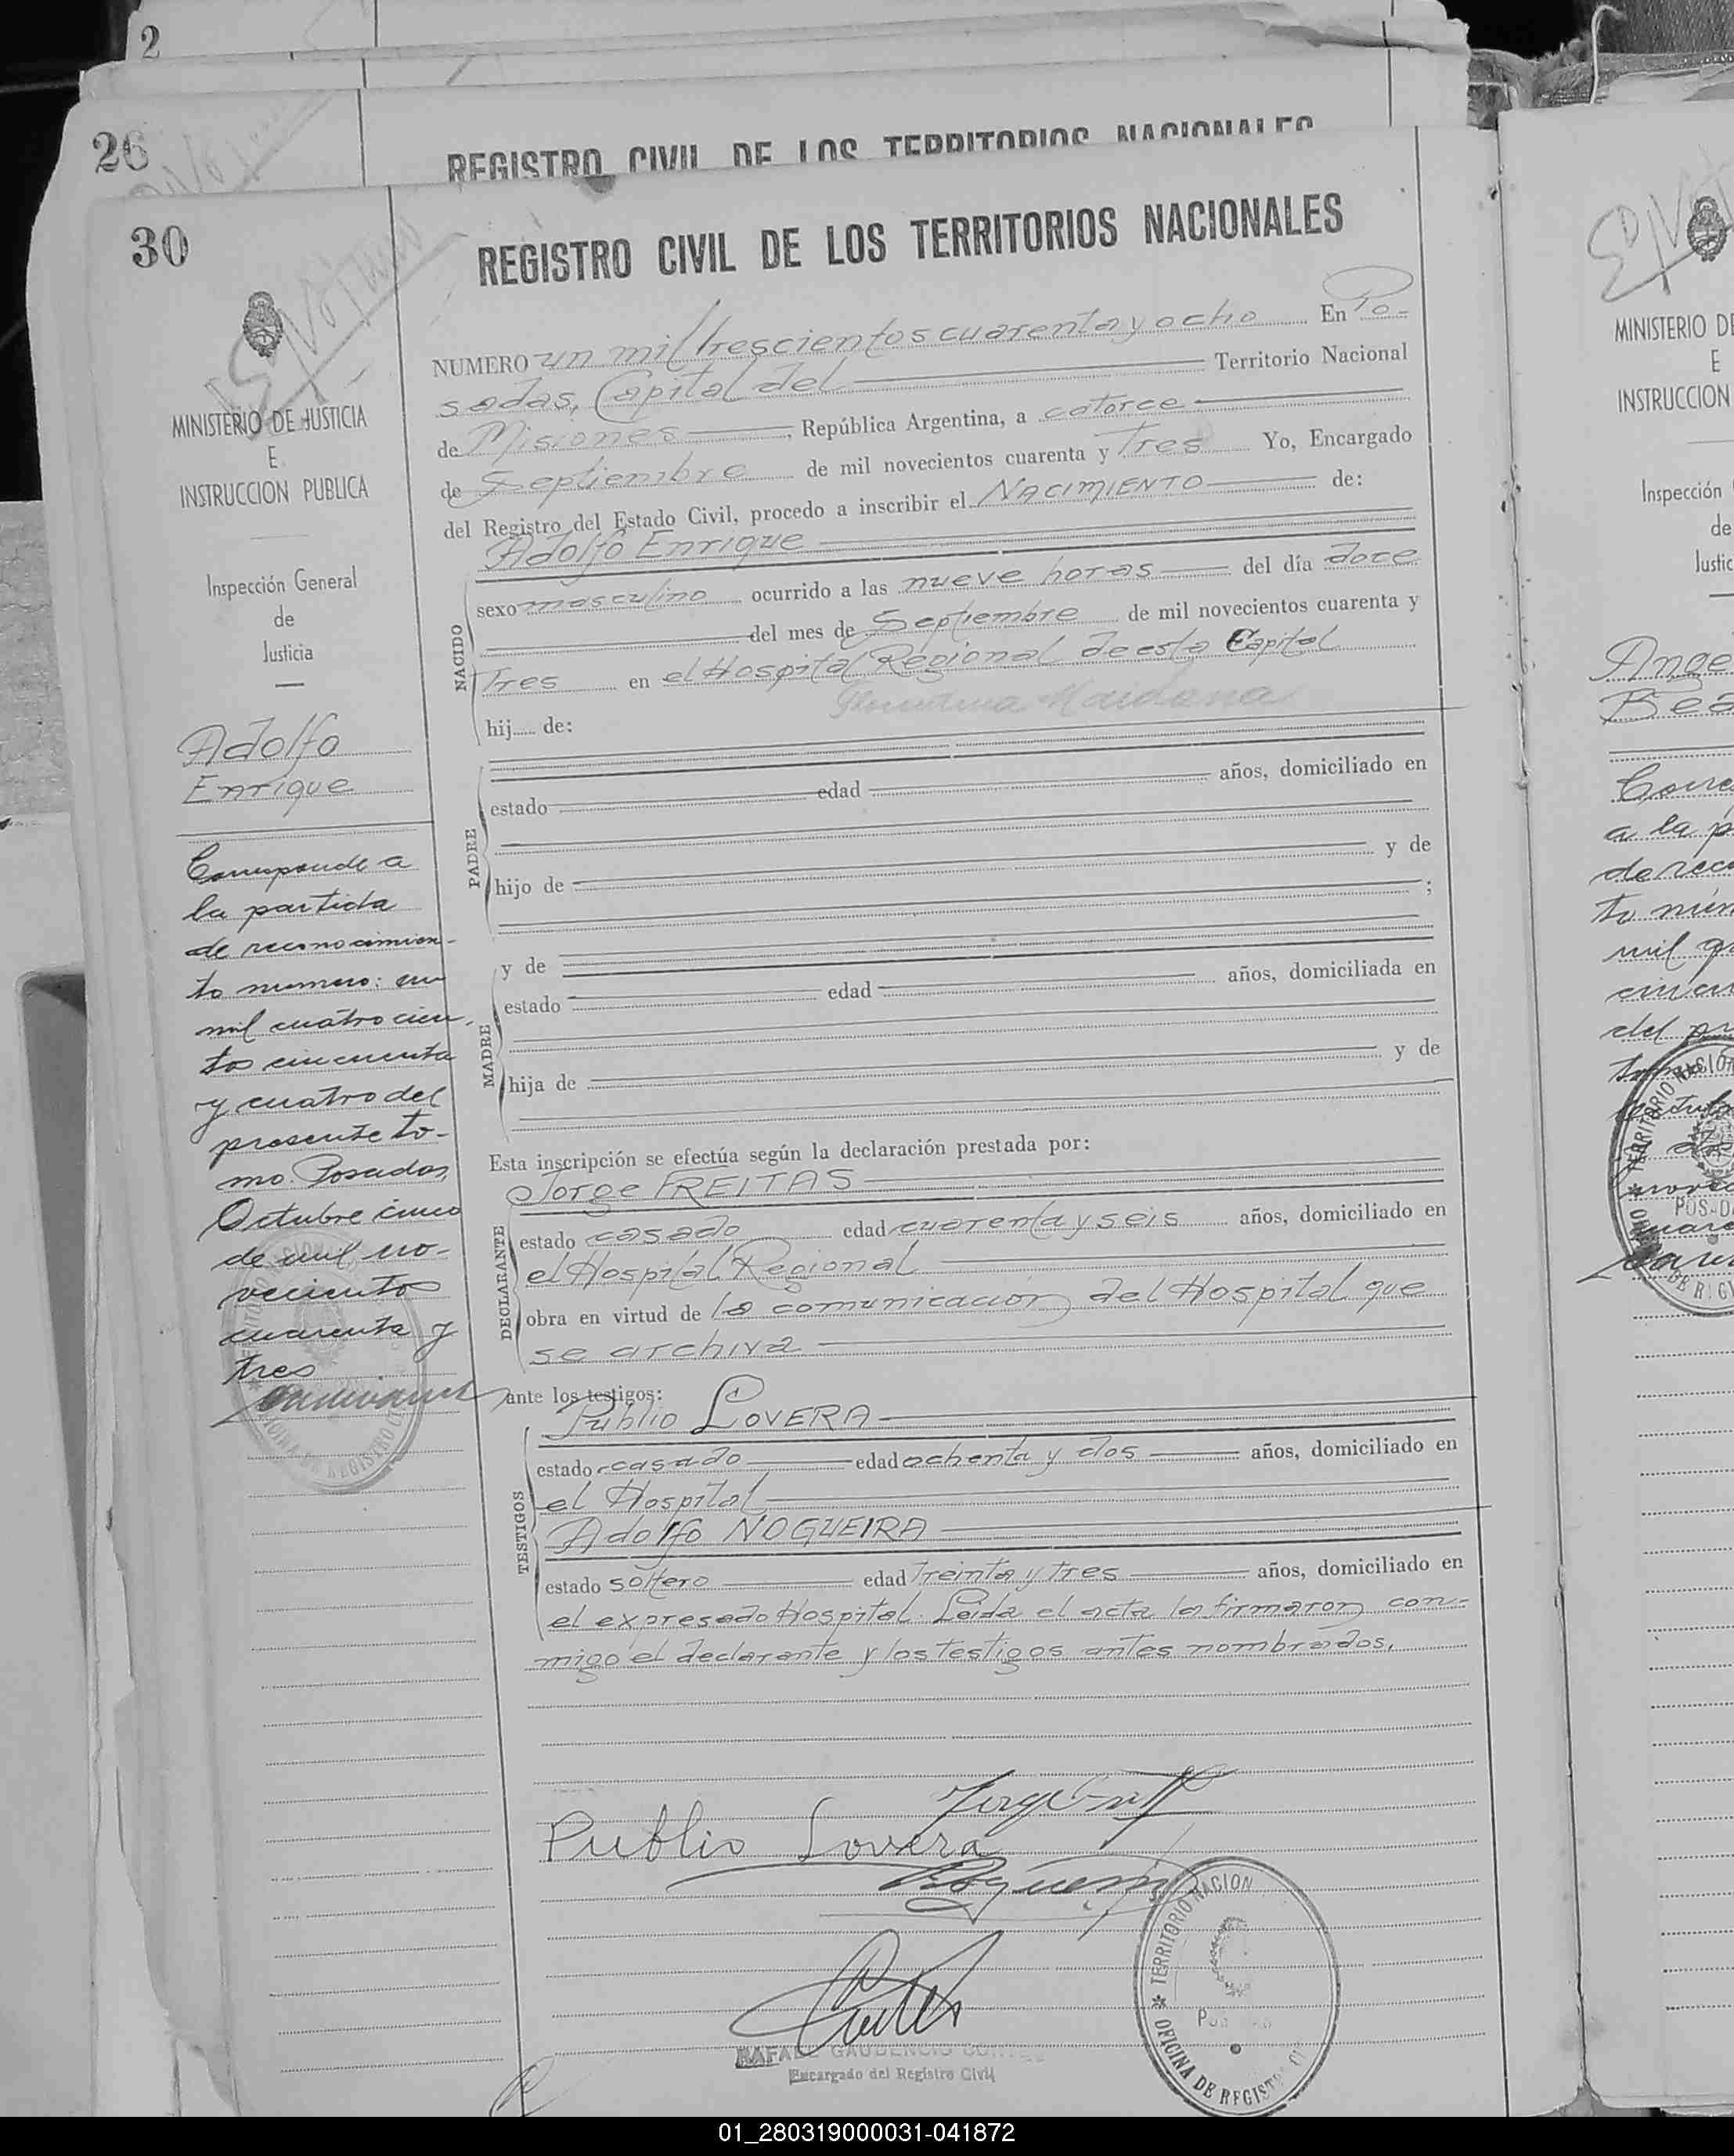 2
26
REGISTRO CIVIL DE LOS TERRITORIOS NACIONALES
30
REGISTRO CIVIL DE LOS TERRITORIOS NACIONALES
MINISTERIO DE JUSTICIA
E
INSTRUCCION PUBLICA
Inspección General
de
Justicia
Adolfo
Enrique
Corresponde a
la partida
de reconocimien-
to numero: un
mil cuatrocien-
tos cincuenta
y cuatro del
presente to-
mo. Posadas,
Octubre cinco
de mil no-
vecientos
cuarenta y
tres
NUMERO un mil trescientos cuarenta y ocho En Po-
sadas, Capital del Territorio Nacional
de Misiones, República Argentina, a catorce
de Septiembre de mil novecientos cuarenta y Tres Yo, Encargado
del Registro del Estado Civil, procedo a inscribir el NACIMIENTO de:
NACIDO
Adolfo Enrique
sexo masculino ocurrido a las nueve horas del día doce
del mes de Septiembre de mil novecientos cuarenta y
Tres en el Hospital Regional de esta Capital
Maidana
hij de:
PADRE
estado edad años, domiciliado en
hijo de y de
;
MADRE
y de
estado edad años, domiciliada en
hija de y de
Esta inscripción se efectúa según la declaración prestada por:
DECLARANTE
Jorge FREITAS
estado casado edad cuarenta y seis años, domiciliado en
el Hospital Regional
obra en virtud de la comunicación del Hospital que
se archiva
ante los testigos:
TESTIGOS
Publio LOVERA
estado casado edad ochenta y dos años, domiciliado en
el Hospital
Adolfo NOGUEIRA
estado soltero edad treinta y tres años, domiciliado en
el expresado Hospital. Leida el acta la firmaron con-
migo el declarante y los testigos antes nombrados.
Publio Lovera
TERRITORIO NACION
OFICINA DE REGISTRO CI
RAFAEL GAUDENCIO
Encargado del Registro Civil
MINISTERIO DE
E
INSTRUCCION
Inspección
de
Justic
Ange
Bea
Corre
a la p
de reco
to núm
mil
del
TERRITORIO NACION
POSADA
01_280319000031-041872